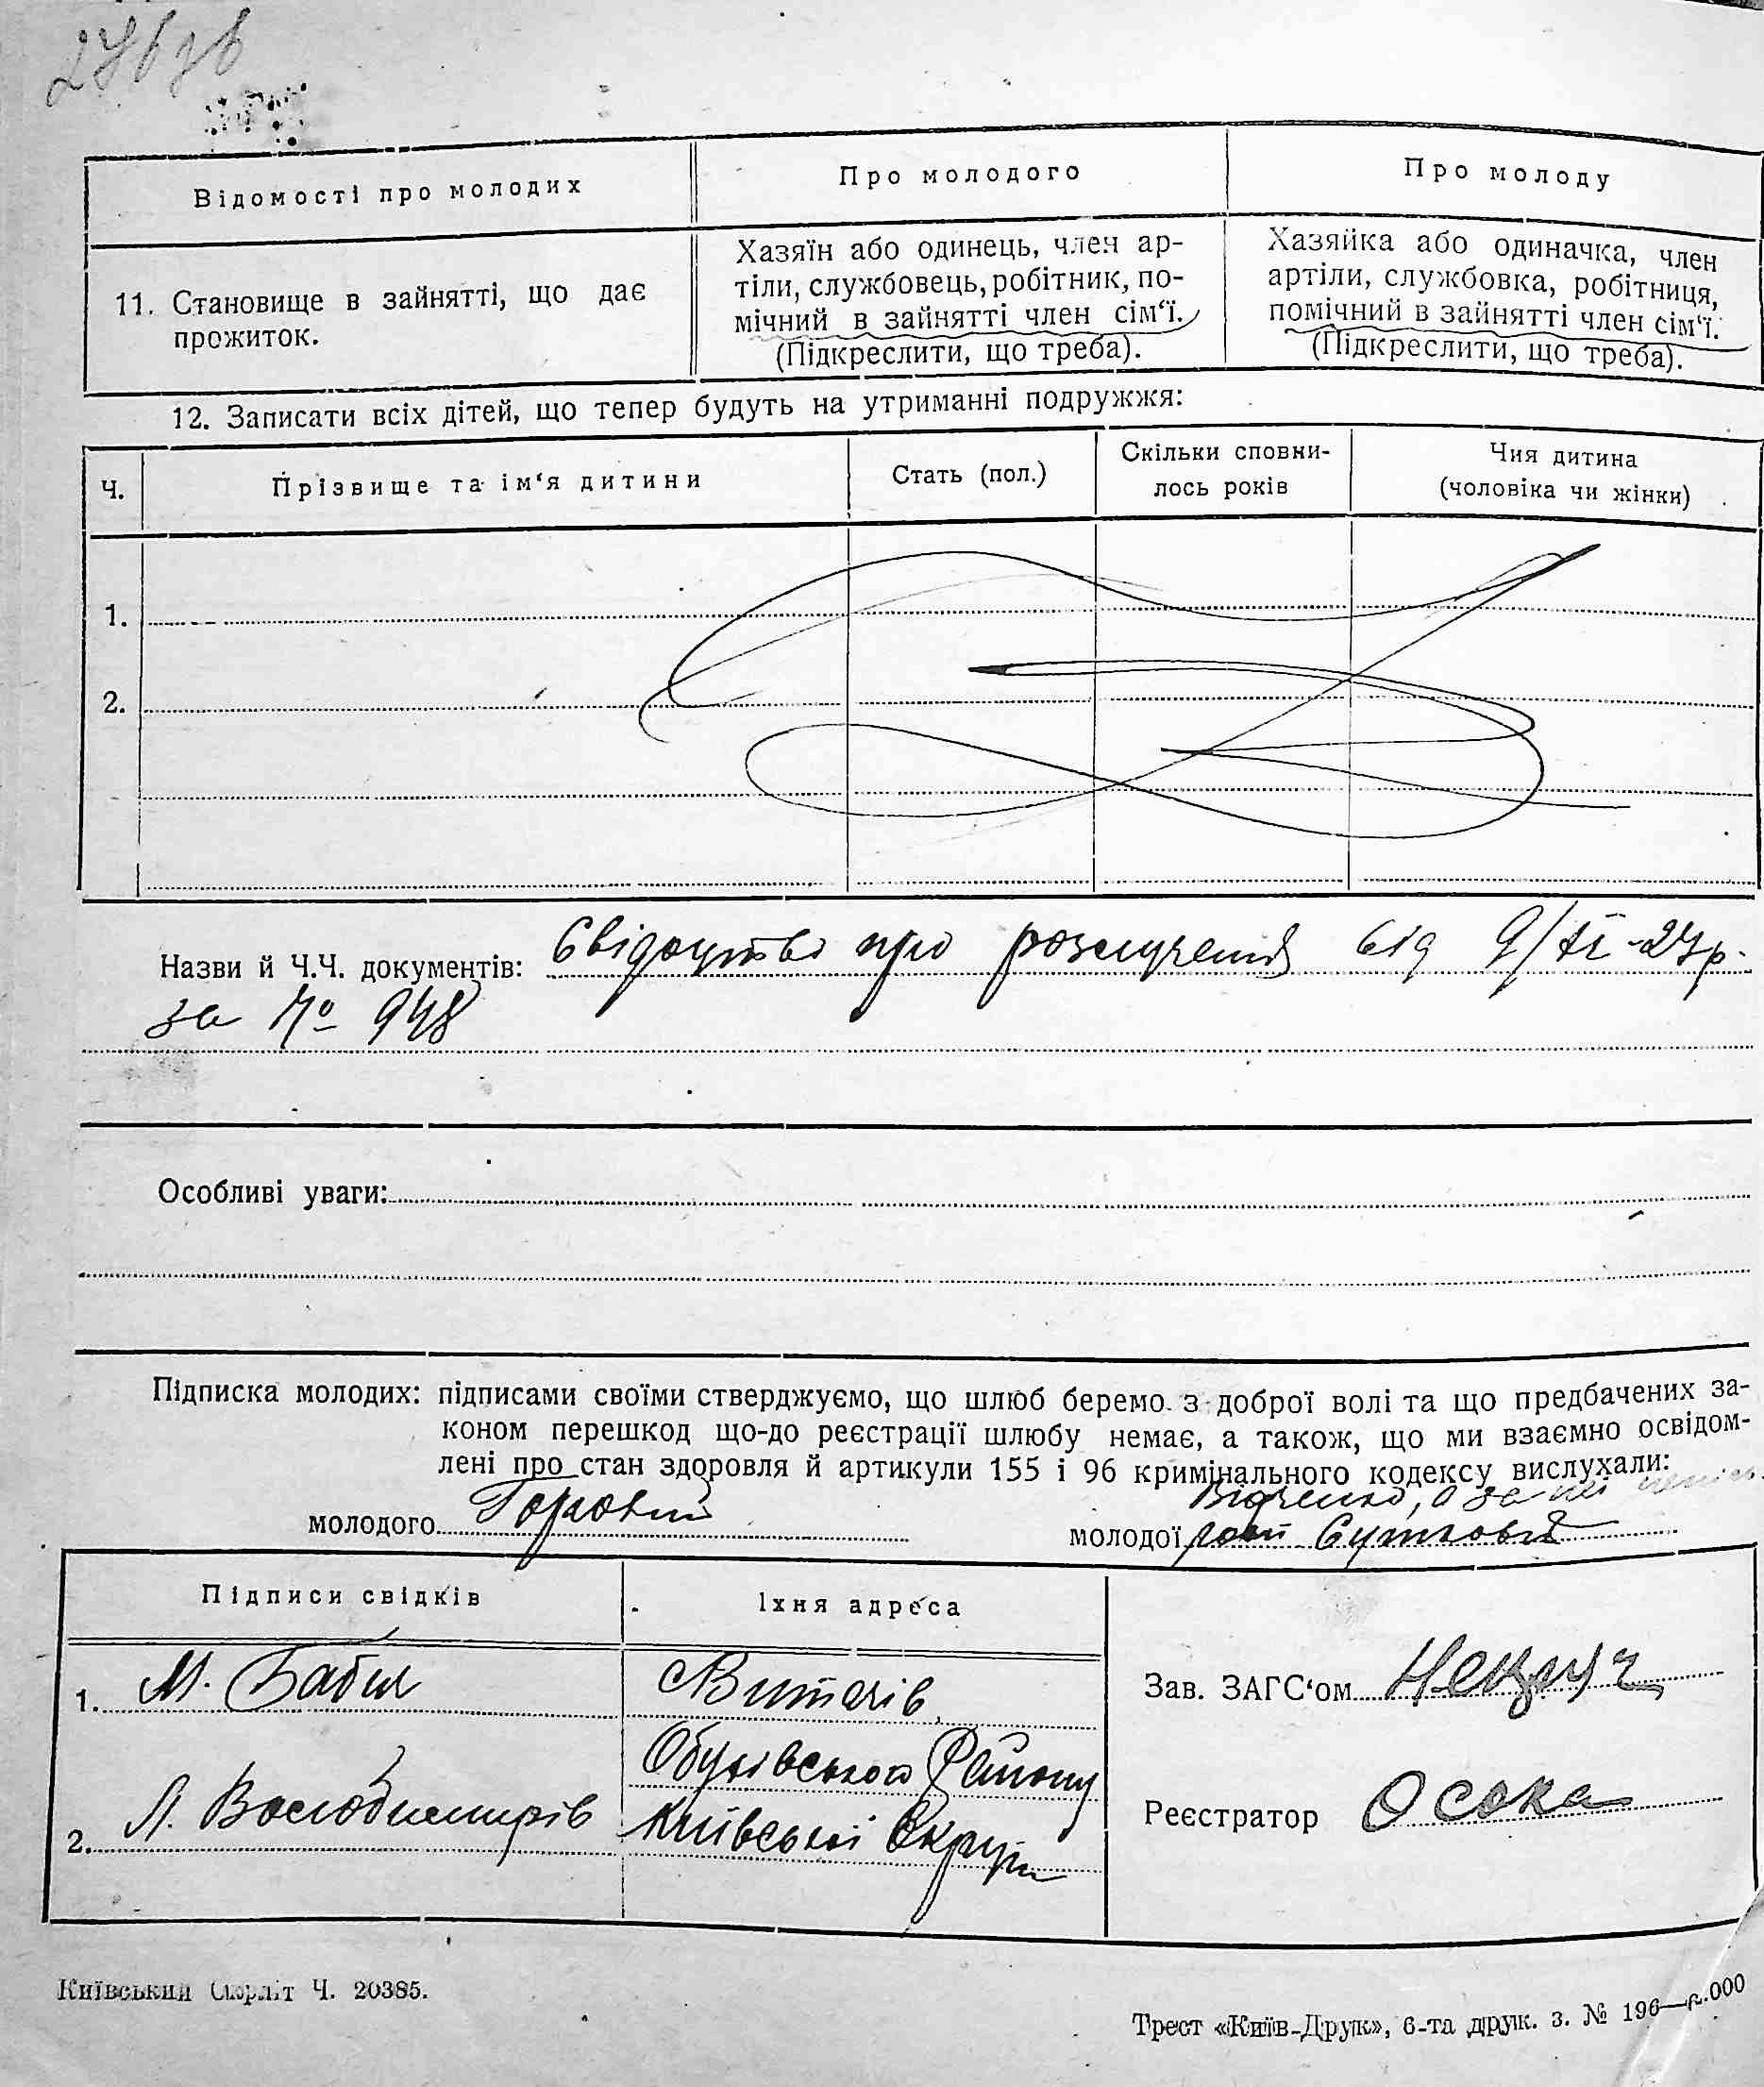 Відомості про молодих
Про молодого
Про молоду
11. Становище в зайнятті, що дає
прожиток.
Хазяїн або одинець, член ар-
тіли, службовець, робітник, по-
мічний в зайнятті член сім‘ї.
(Підкреслити, що треба).
Хазяйка або одиначка, член
артіли, службовка, робітниця,
помічний в зайнятті член сім‘ї.
(Підкреслити, що треба).
12. Записати всіх дітей, що тепер будуть на утриманні подружжя:
Ч.
Прізвище та ім‘я дитини
Стать (пол.)
Скільки сповни-
лось років
Чия дитина
(чоловіка чи жінки)
1.
2.
Назви й Ч.Ч. документів: Свідоцтво про розлучення від 9/XI-27р.
за № 948
Особливі уваги:
Підписка молодих: підписами своїми стверджуємо, що шлюб беремо з доброї волі та що предбачених за-
коном перешкод що-до реєстрації шлюбу немає, а також, що ми взаємно освідом-
лені про стан здоровля й артикули 155 і 96 кримінального кодексу вислухали:
молодого Горовий
а за неї
молодої
Підписи свідків
Їхня адреса
1. М. Бабич
Витачів
Обухівського Району
2. Л. Володимирів
Київської Округи
Зав. ЗАГС‘ом
Реєстратор Осока
Київський Окрліт Ч. 20385.
Трест «Київ-Друк», 6-та друк. з. № 196